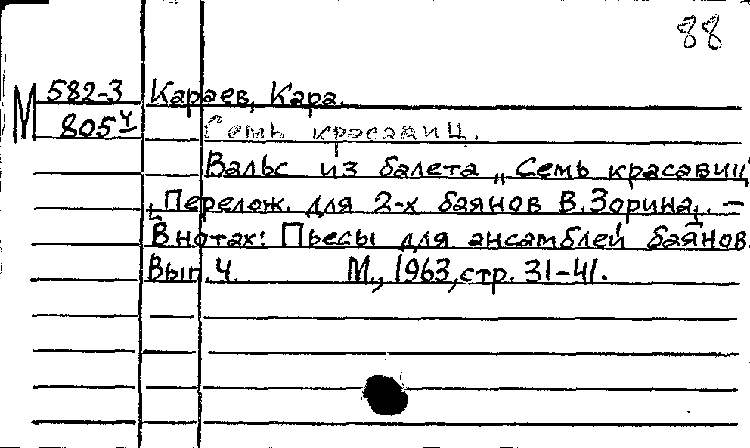 88
М 582-3 Караев, Кара.
805ч Семь красавиц.
Вальс из балета „Семь красавиц"
[Перелож. для 2-х баянов В.Зорина]. —
В нотах: Пьесы для ансамблей баянов.
Вып.4. М., 1963, стр. 31-41.